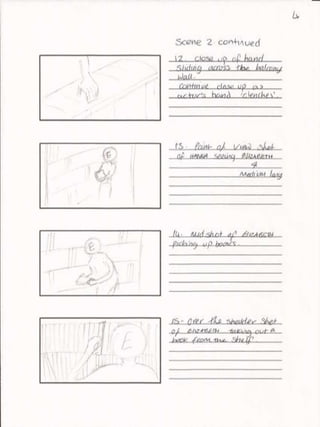 Scene 2 continued
12. close up of hand
sliding across the balcony
wall.
continue close up as
actor's hand 'clenches'.
13- Point of view shot
of HANNA seeing ELIZABETH
Medium long
E
14. Mid shot of ELIZABETH
picking up books.
E
15- Over the shoulder shot
of ELIZABETH taking out a
book from the shelf.
E